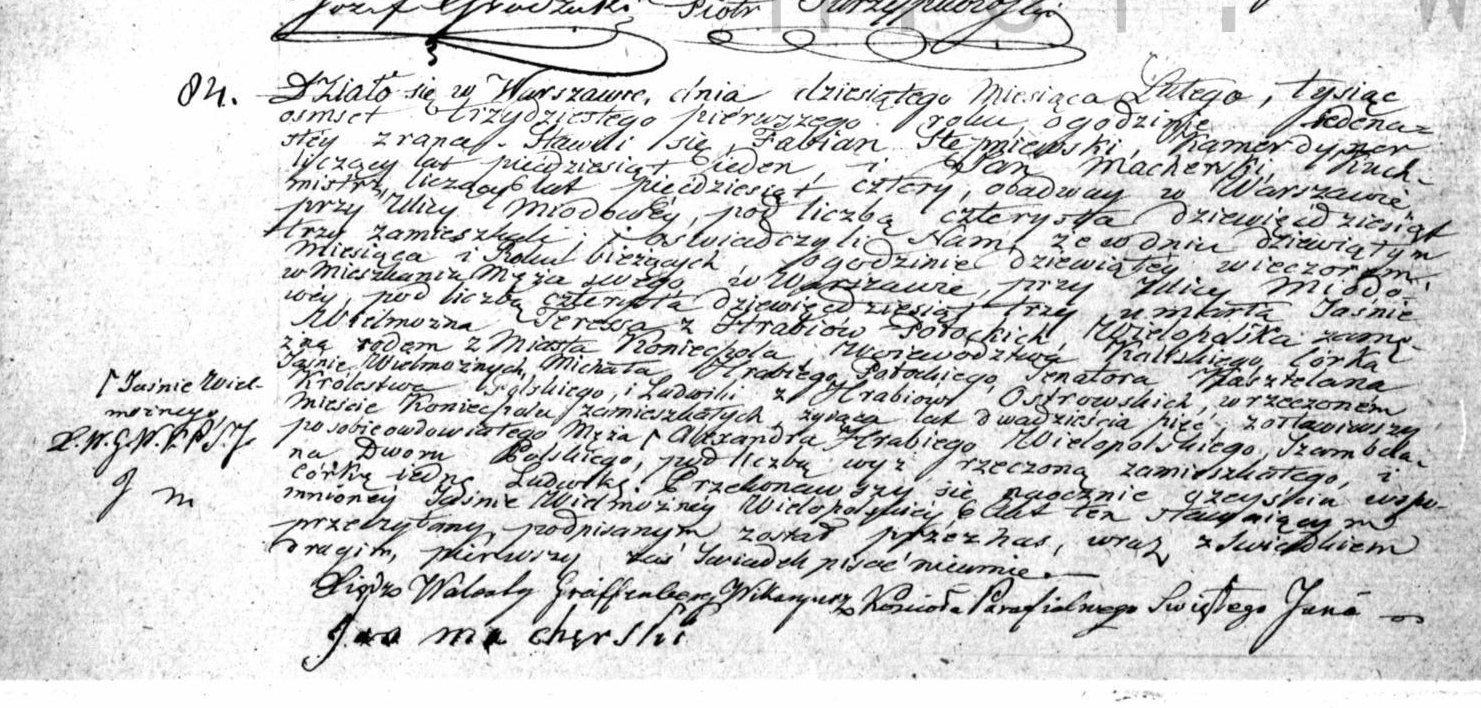 Józef Grodzicki Piotr
84. Działo się w Warszawie, dnia dziesiątego Miesiąca Lutego, tysiąc
osmset trzydziestego pierwszego roku, o godzinie Jedenas=
stey zrana. Stawili się, Fabian Stępniewski, Kamerdyner
liczący lat pięćdziesiąt ieden, i Jan Macherski, Kuch=
mistrz, liczący lat pięćdziesiąt cztery, obadway w Warszawie
przy Ulicy Miodowey, pod liczbą czterysta dziewięćdziesiąt
trzy zamieszkali; i oświadczyli Nam, że w dniu dziewiątym
Miesiąca i Roku bieżących, o godzinie dziewiątey wieczorem,
w Mieszkaniu Męża swego, w Warszawie, przy Ulicy Miodo=
wey, pod liczbą czterysta dziewięćdziesiąt trzy, umarła Jaśnie
Wielmożna Teressa z Hrabiów Potockich, Wielopolska zamę=
żna, rodem z Miasta Koniecpola, Województwa Kaliskiego, Córka
Jaśnie Wielmożnych, Michała Hrabiego Potockiego, Senatora Kasztelana
Królestwa Polskiego, i Ludwiki z Hrabiów Ostrowskich, w rzeczonem
Mieście Koniecpolu zamieszkałych, żyiąca lat dwadzieścia pięć, zostawiwszy
po sobie owdowiałego Męża ſ Alexandra Hrabiego Wielopolskiego, Szambela=
na Dworu Polskiego, pod liczbą wyż rzeczoną zamieszkałego, i
córkę iedną Ludwikę. Przekonawszy się naocznie o zeyściu wspo=
mnioney Jaśnie Wielmożney Wielopolskiey, Akt ten stawaiącym
przeczytany, podpisanym został przez nas, wraz z Swiadkiem
drugim, pierwszy zaś Swiadek pisać nieumie.
ſ Jaśnie Wiel=
możnego,
X. W. G. W. K. P. S. J.
J M
Xiądz Walenty Greiffenberg Wikaryusz Kościoła Parafialnego Swiętego Jana
Jan macherski